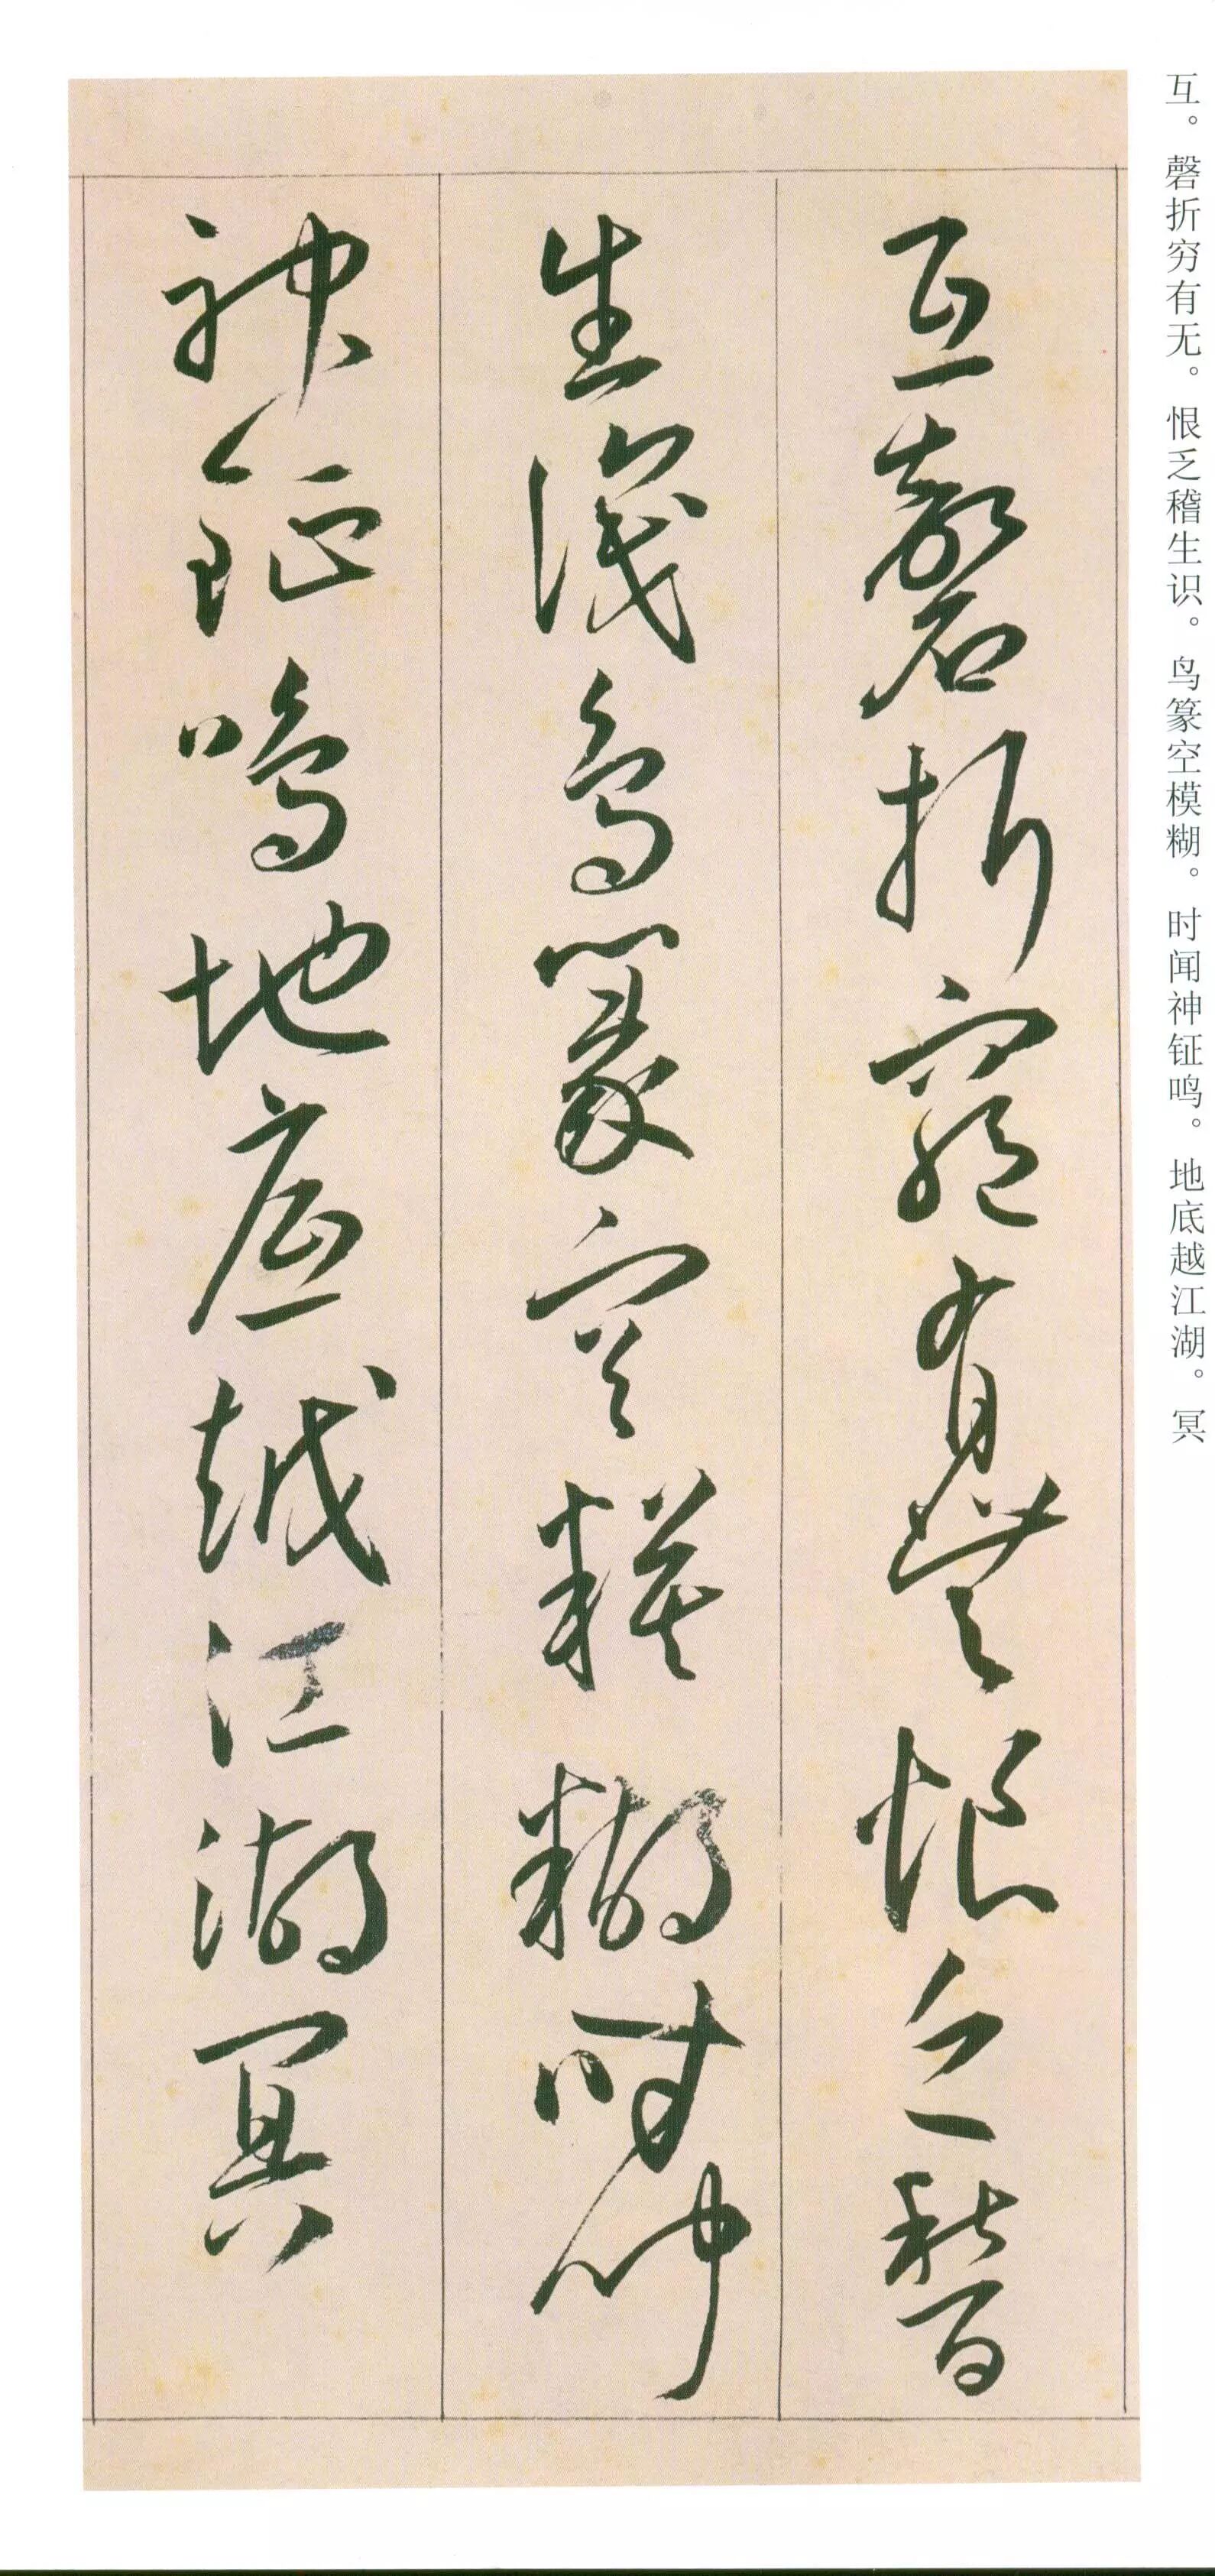 互。磬折穷有无。恨乏稽生识。鸟篆空模糊。时闻神钲鸣。地底越江湖。冥
互磬折窮有無恨乏稽
生識鳥篆空糢糊時聞
神鉦鳴地底越江湖冥